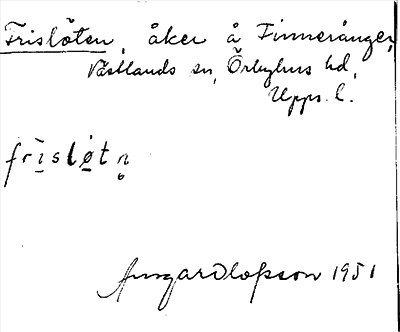 Frislöten, åker å Finneränger,
Västlands sn, Örbyhus hd,
Upps. l.
frisløtn̥
1951